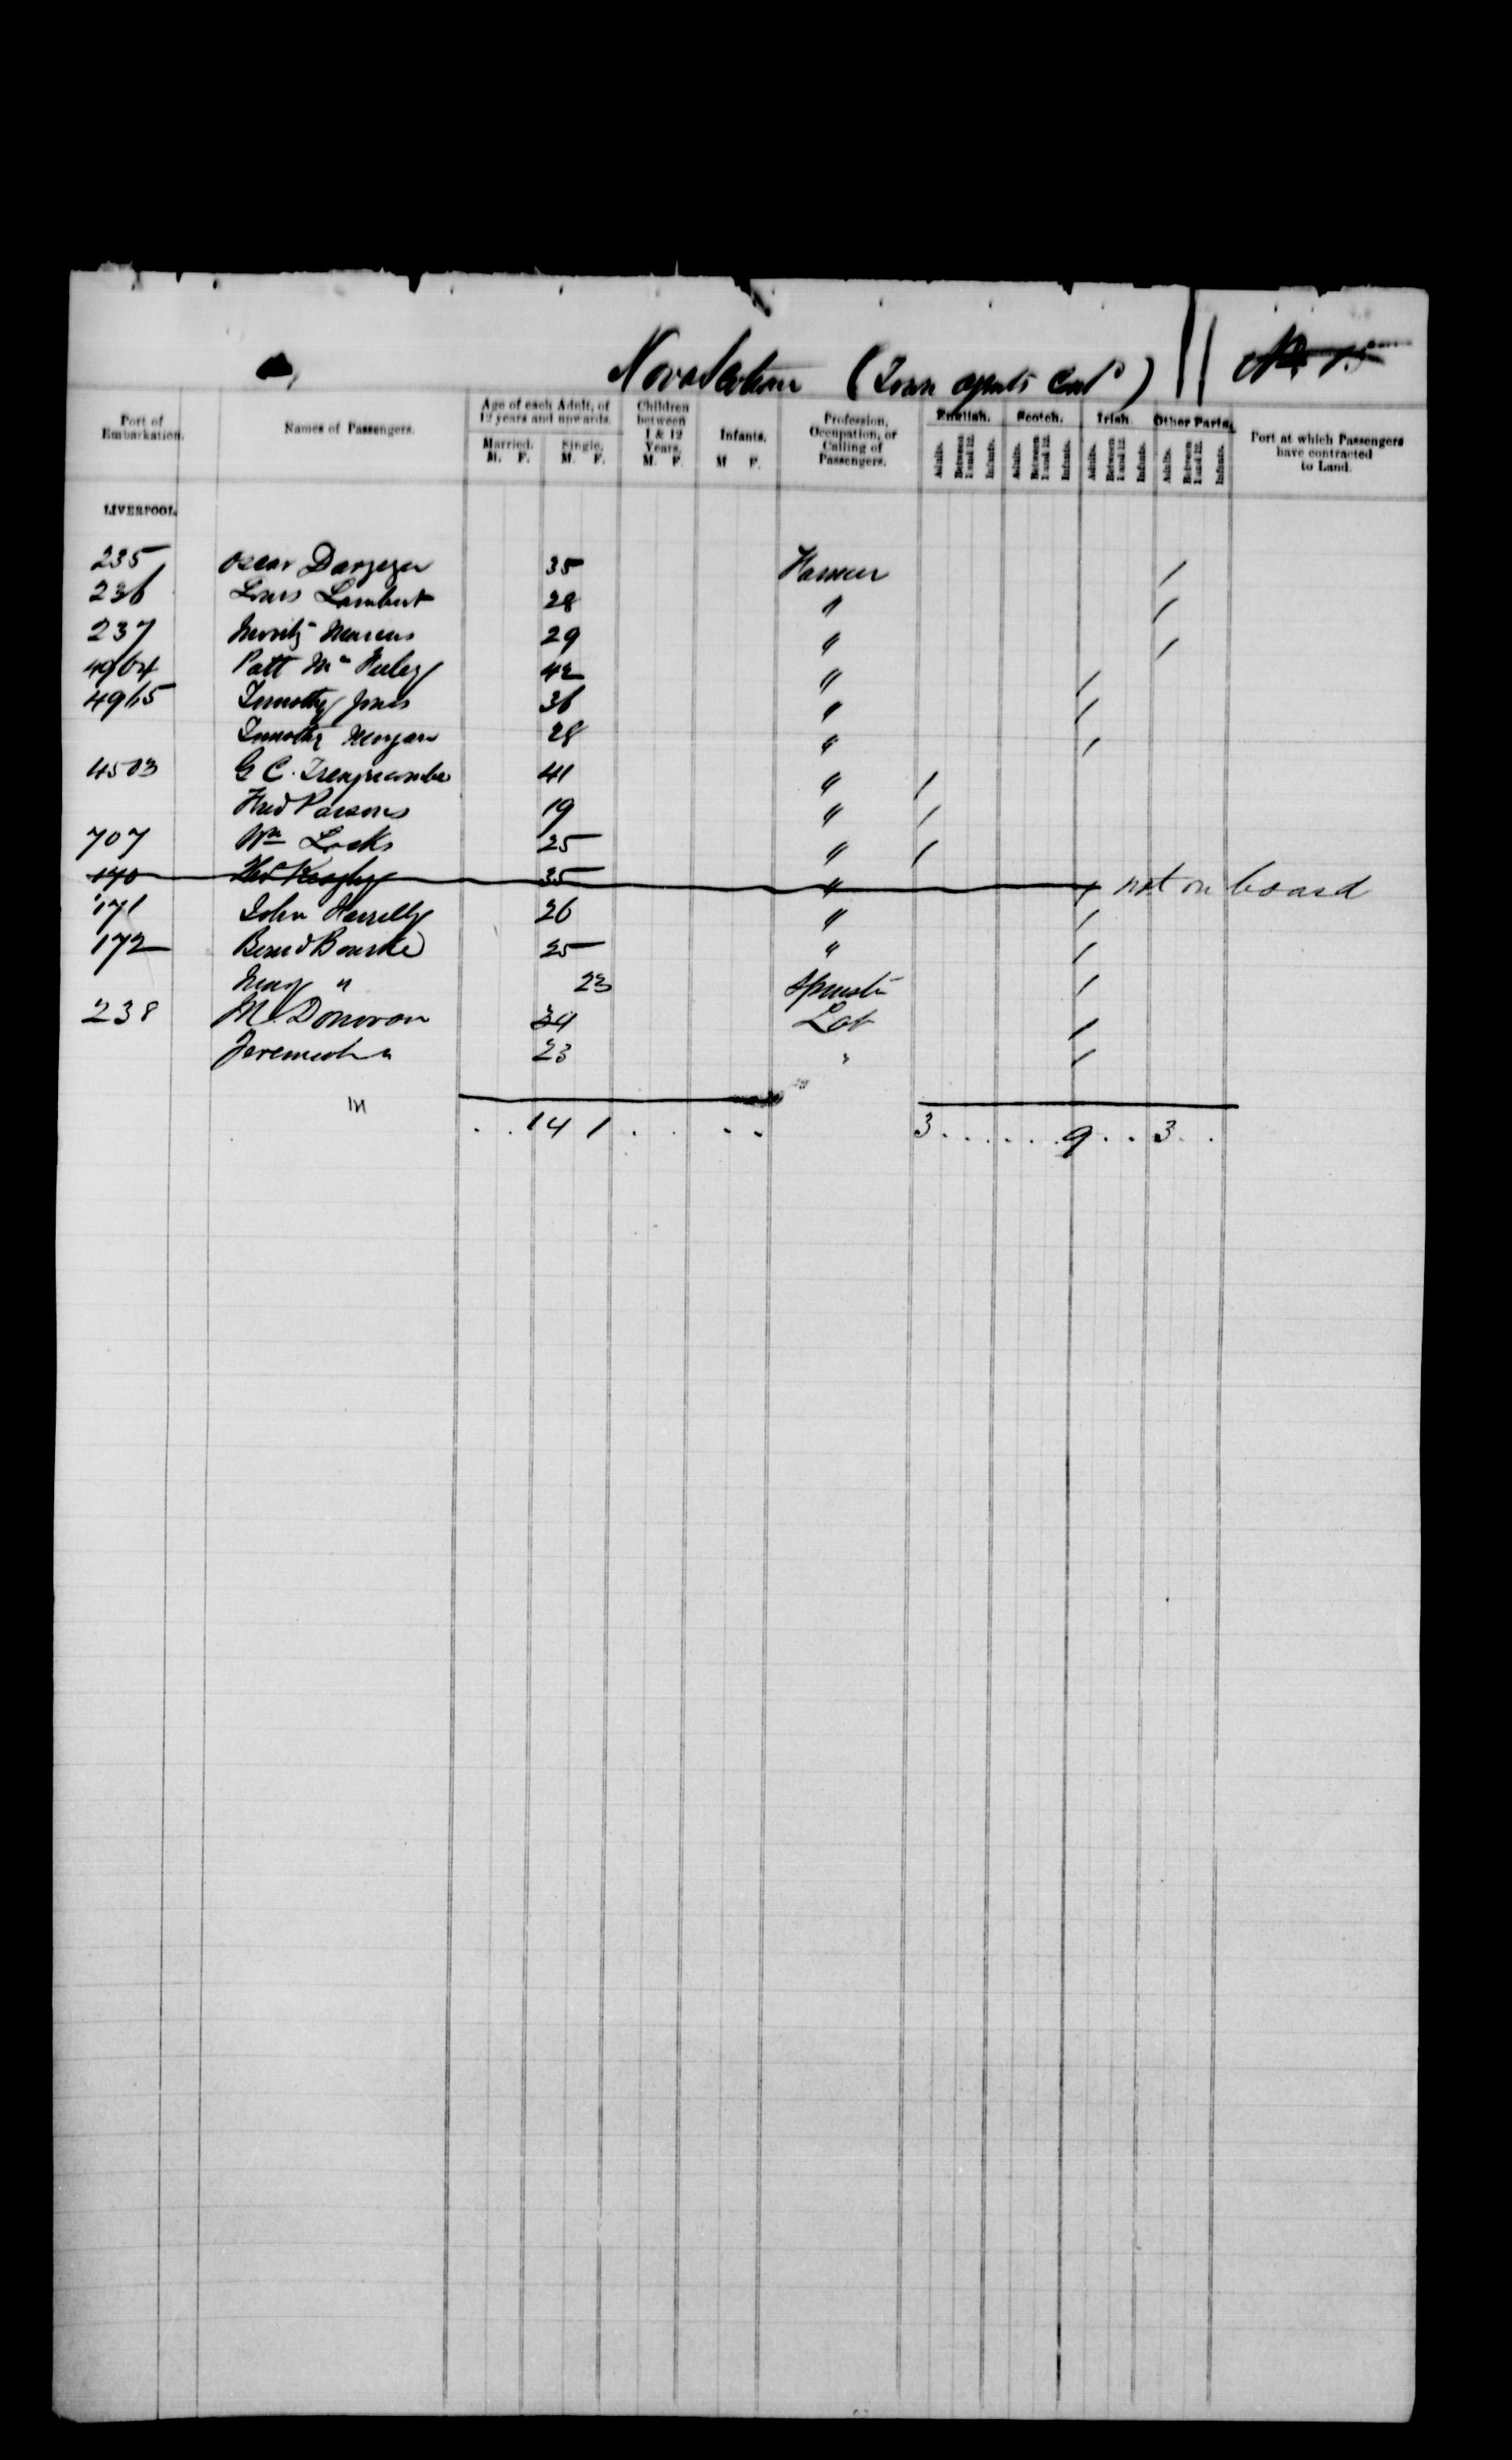 Nova Scotian (Town agents Cont^d) No 15
Port of Embarkation. Names of Passengers. Age of each Adult, of 12 years and upwards. Married. M. F. Single. M. F. Children between 1 & 12 Years. M. F. Infants. M F. Profession, Occupation, or Calling of Passengers. English. Adults. Between 1 and 12. Infants. Scotch. Adults. Between 1 and 12. Infants. Irish. Adults. Between 1 and 12. Infants. Other Parts. Adults. Between 1 and 12. Infants. Port at which Passengers have contracted to Land.
LIVERPOOL.
235 Oscar 35 Farmer /
236 Louis Lambert 28 " /
237 Moritz Marcus 29 " /
4964 Patt 42 " /
4965 Timothy Jones 36 " /
Timothy Morgan 28 " /
4503 G C. 41 " /
Fred Parsons 19 " /
707 Wm Locks 25 " /
170 35 " / not on board
171 John 26 " /
172 Bernd Bourke 25 " /
Mary " 23 Spinster /
238 M. Donovan 24 Lab /
Jeremiah " 23 " /
. . 14 1 . . . . 3 . . . . . . 9 . . 3 . .